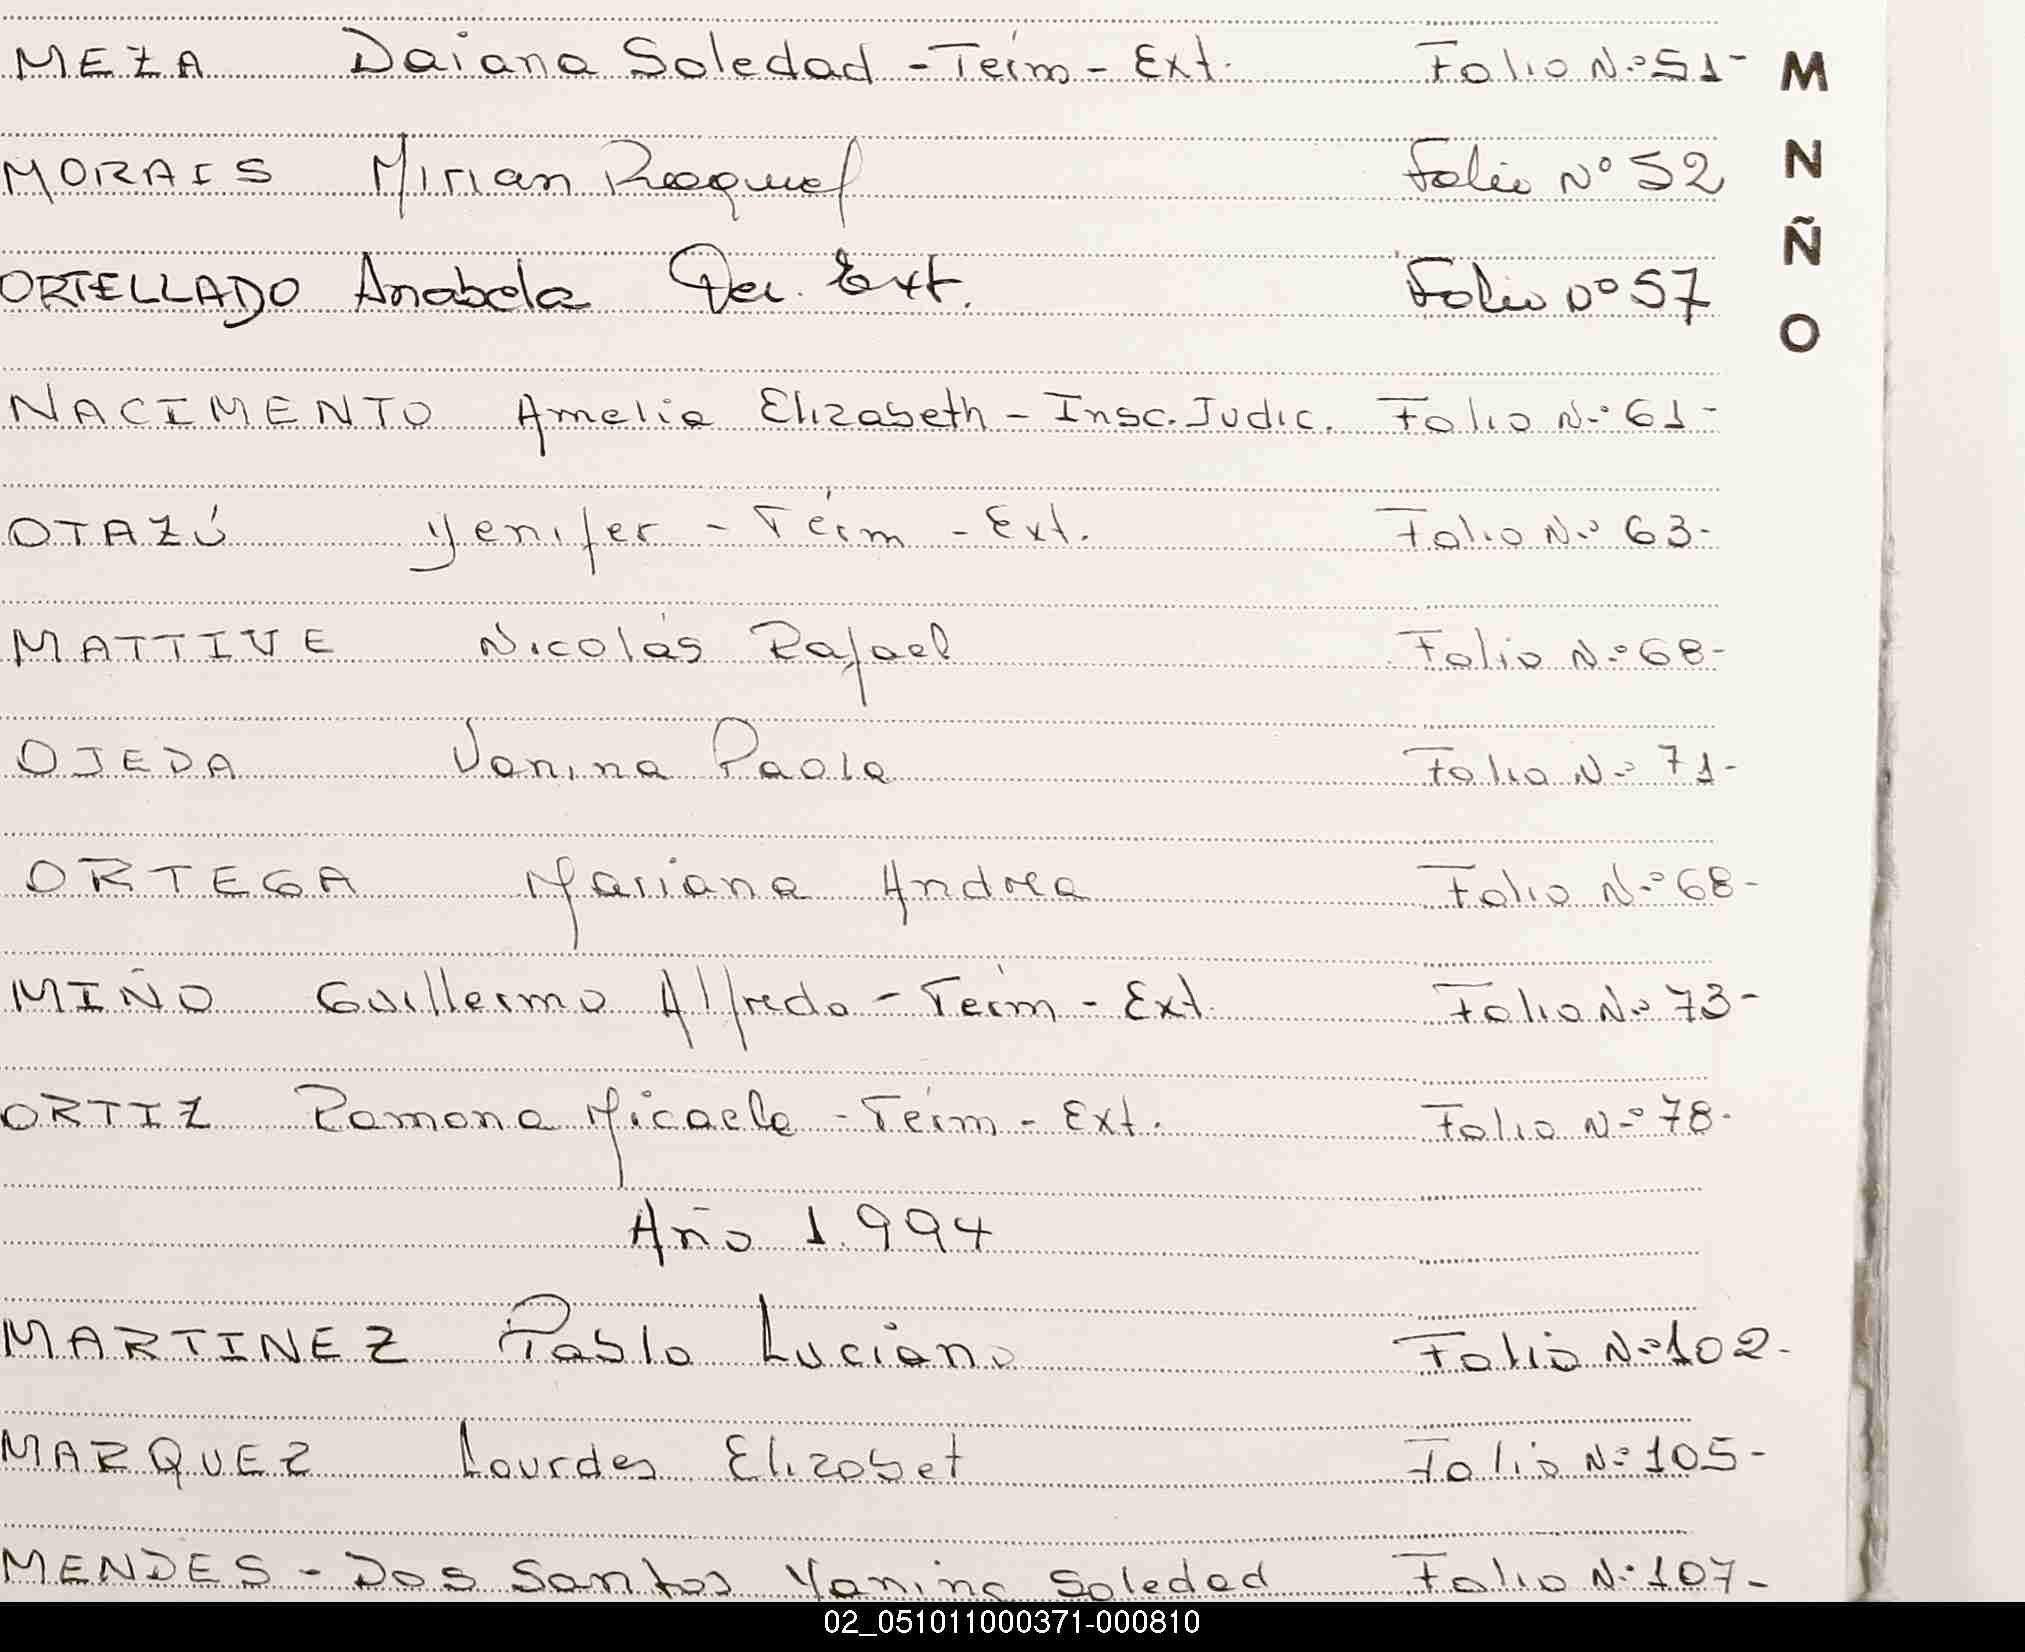 MEZA Daiana Soledad - Térm - Ext. Folio N.º 51-
MORAIS Mirian Raquel Folio Nº 52
ORTELLADO Anabela Ext. Folio Nº 57
NACIMENTO Amelia Elizabeth - Insc. Judic. Folio N.º 61-
OTAZÚ Yenifer - Térm - Ext. Folio N.º 63-
MATTIVE Nicolás Rafael Folio N.º 68-
OJEDA Vanina Paola Folio N.º 71-
ORTEGA Mariana Andrea Folio N.º 68-
MIÑO Guillermo Alfredo - Térm - Ext. Folio N.º 73-
ORTIZ Ramona Micaela - Térm - Ext. Folio N.º 78-
Año 1.994
MARTINEZ Pablo Luciano Folio N.º 102-
MARQUEZ Lourdes Elizabet Folio N.º 105-
MENDES - Dos Santos Yanina Soledad Folio N.º 107-
M
N
Ñ
O
02_051011000371-000810